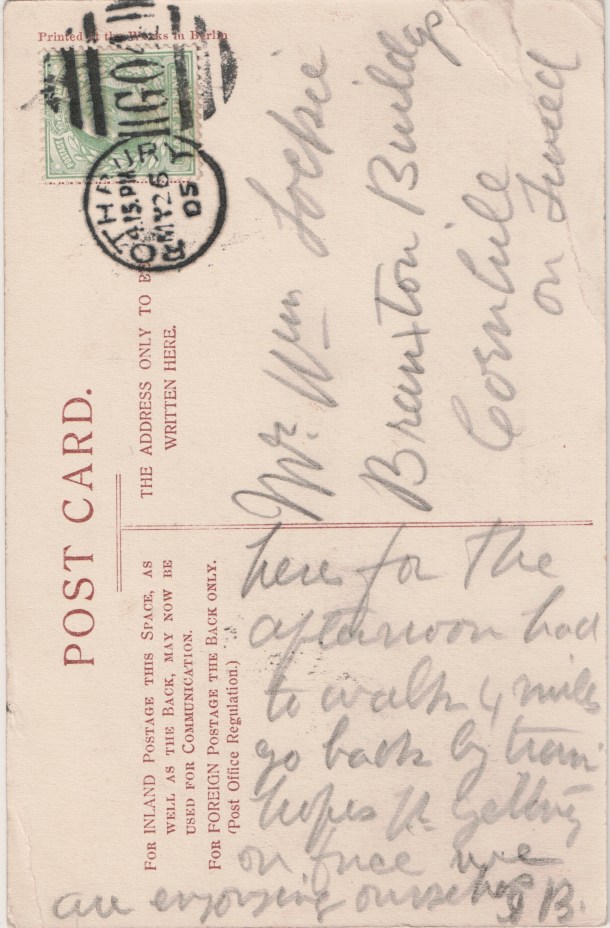 Printed at the Works in Berlin
ROTHBURY
4.15.PM
MY 26
05
POST CARD.
THE ADDRESS ONLY TO BE
WRITTEN HERE.
FOR INLAND POSTAGE THIS SPACE, AS
WELL AS THE BACK, MAY NOW BE
USED FOR COMMUNICATION.
FOR FOREIGN POSTAGE THE BACK ONLY.
(Post Office Regulation.)
Mr. Wm Lockie
Branxton Buildgs
Cornhill
on Tweed
here for the
afternoon had
to walk 4 miles
go back by train
hopes Jt. getting
on fine we
are enjoying ourselves
B.